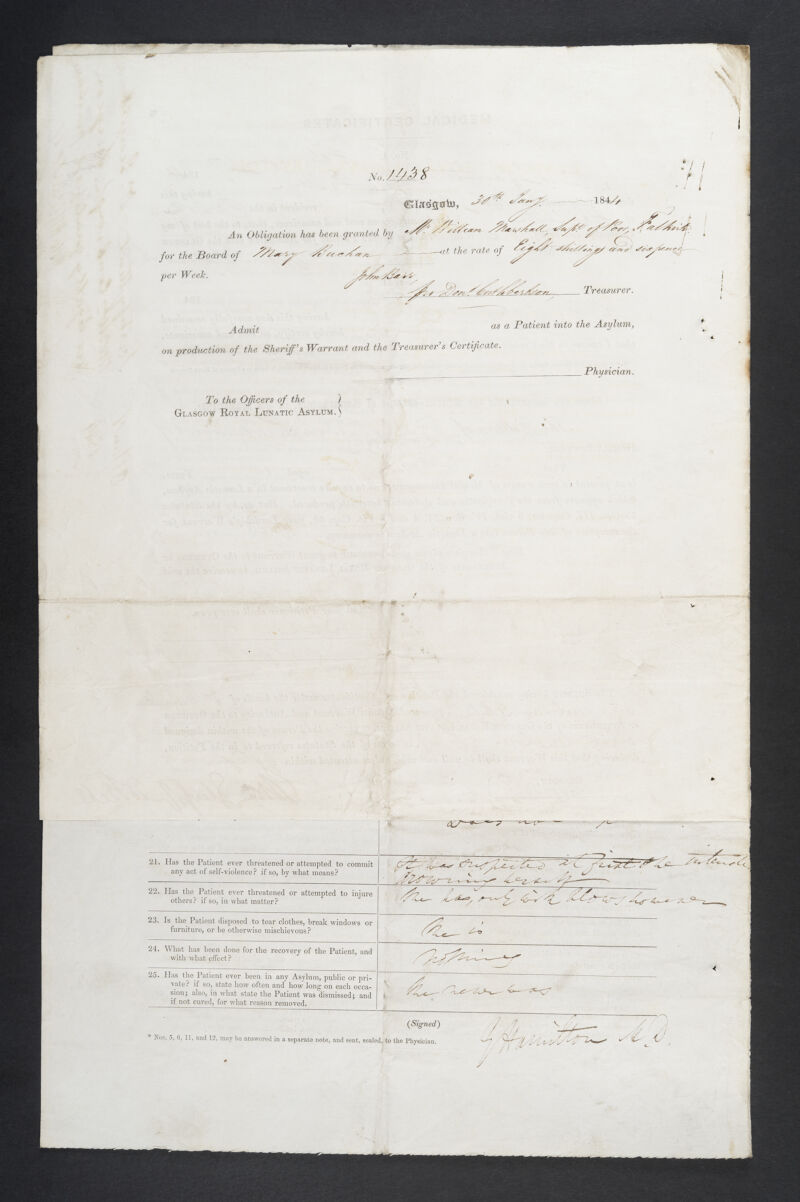 No. 1438
Glasgow, 30th Jany 1844
An Obligation has been granted by Mr William Marshall, Supt. of Poor, Falkirk
for the Board of Mary Buchan at the rate of Eight shillings and sixpence
per Week. John Barr,
pro Don. Cuthbertson, Treasurer.
Admit as a Patient into the Asylum,
on production of the Sheriff's Warrant and the Treasurer's Certificate.
Physician.
To the Officers of the
GLASGOW ROYAL LUNATIC ASYLUM.
does not
21. Has the Patient ever threatened or attempted to commit any act of self-violence? if so, by what means?
It was suspected at first she intended
drowning herself
22. Has the Patient ever threatened or attempted to injure others? if so, in what matter?
She has, only with blows however
23. Is the Patient disposed to tear clothes, break windows or furniture, or be otherwise mischievous?
She is
24. What has been done for the recovery of the Patient, and with what effect?
Nothing
25. Has the Patient ever been in any Asylum, public or private? if so, state how often and how long on each occasion; also, in what state the Patient was dismissed; and if not cured, for what reason removed.
She never was
(Signed)
* Nos. 5, 6, 11, and 12, may be answered in a separate note, and sent, sealed, to the Physician.
G Hamilton M.D.